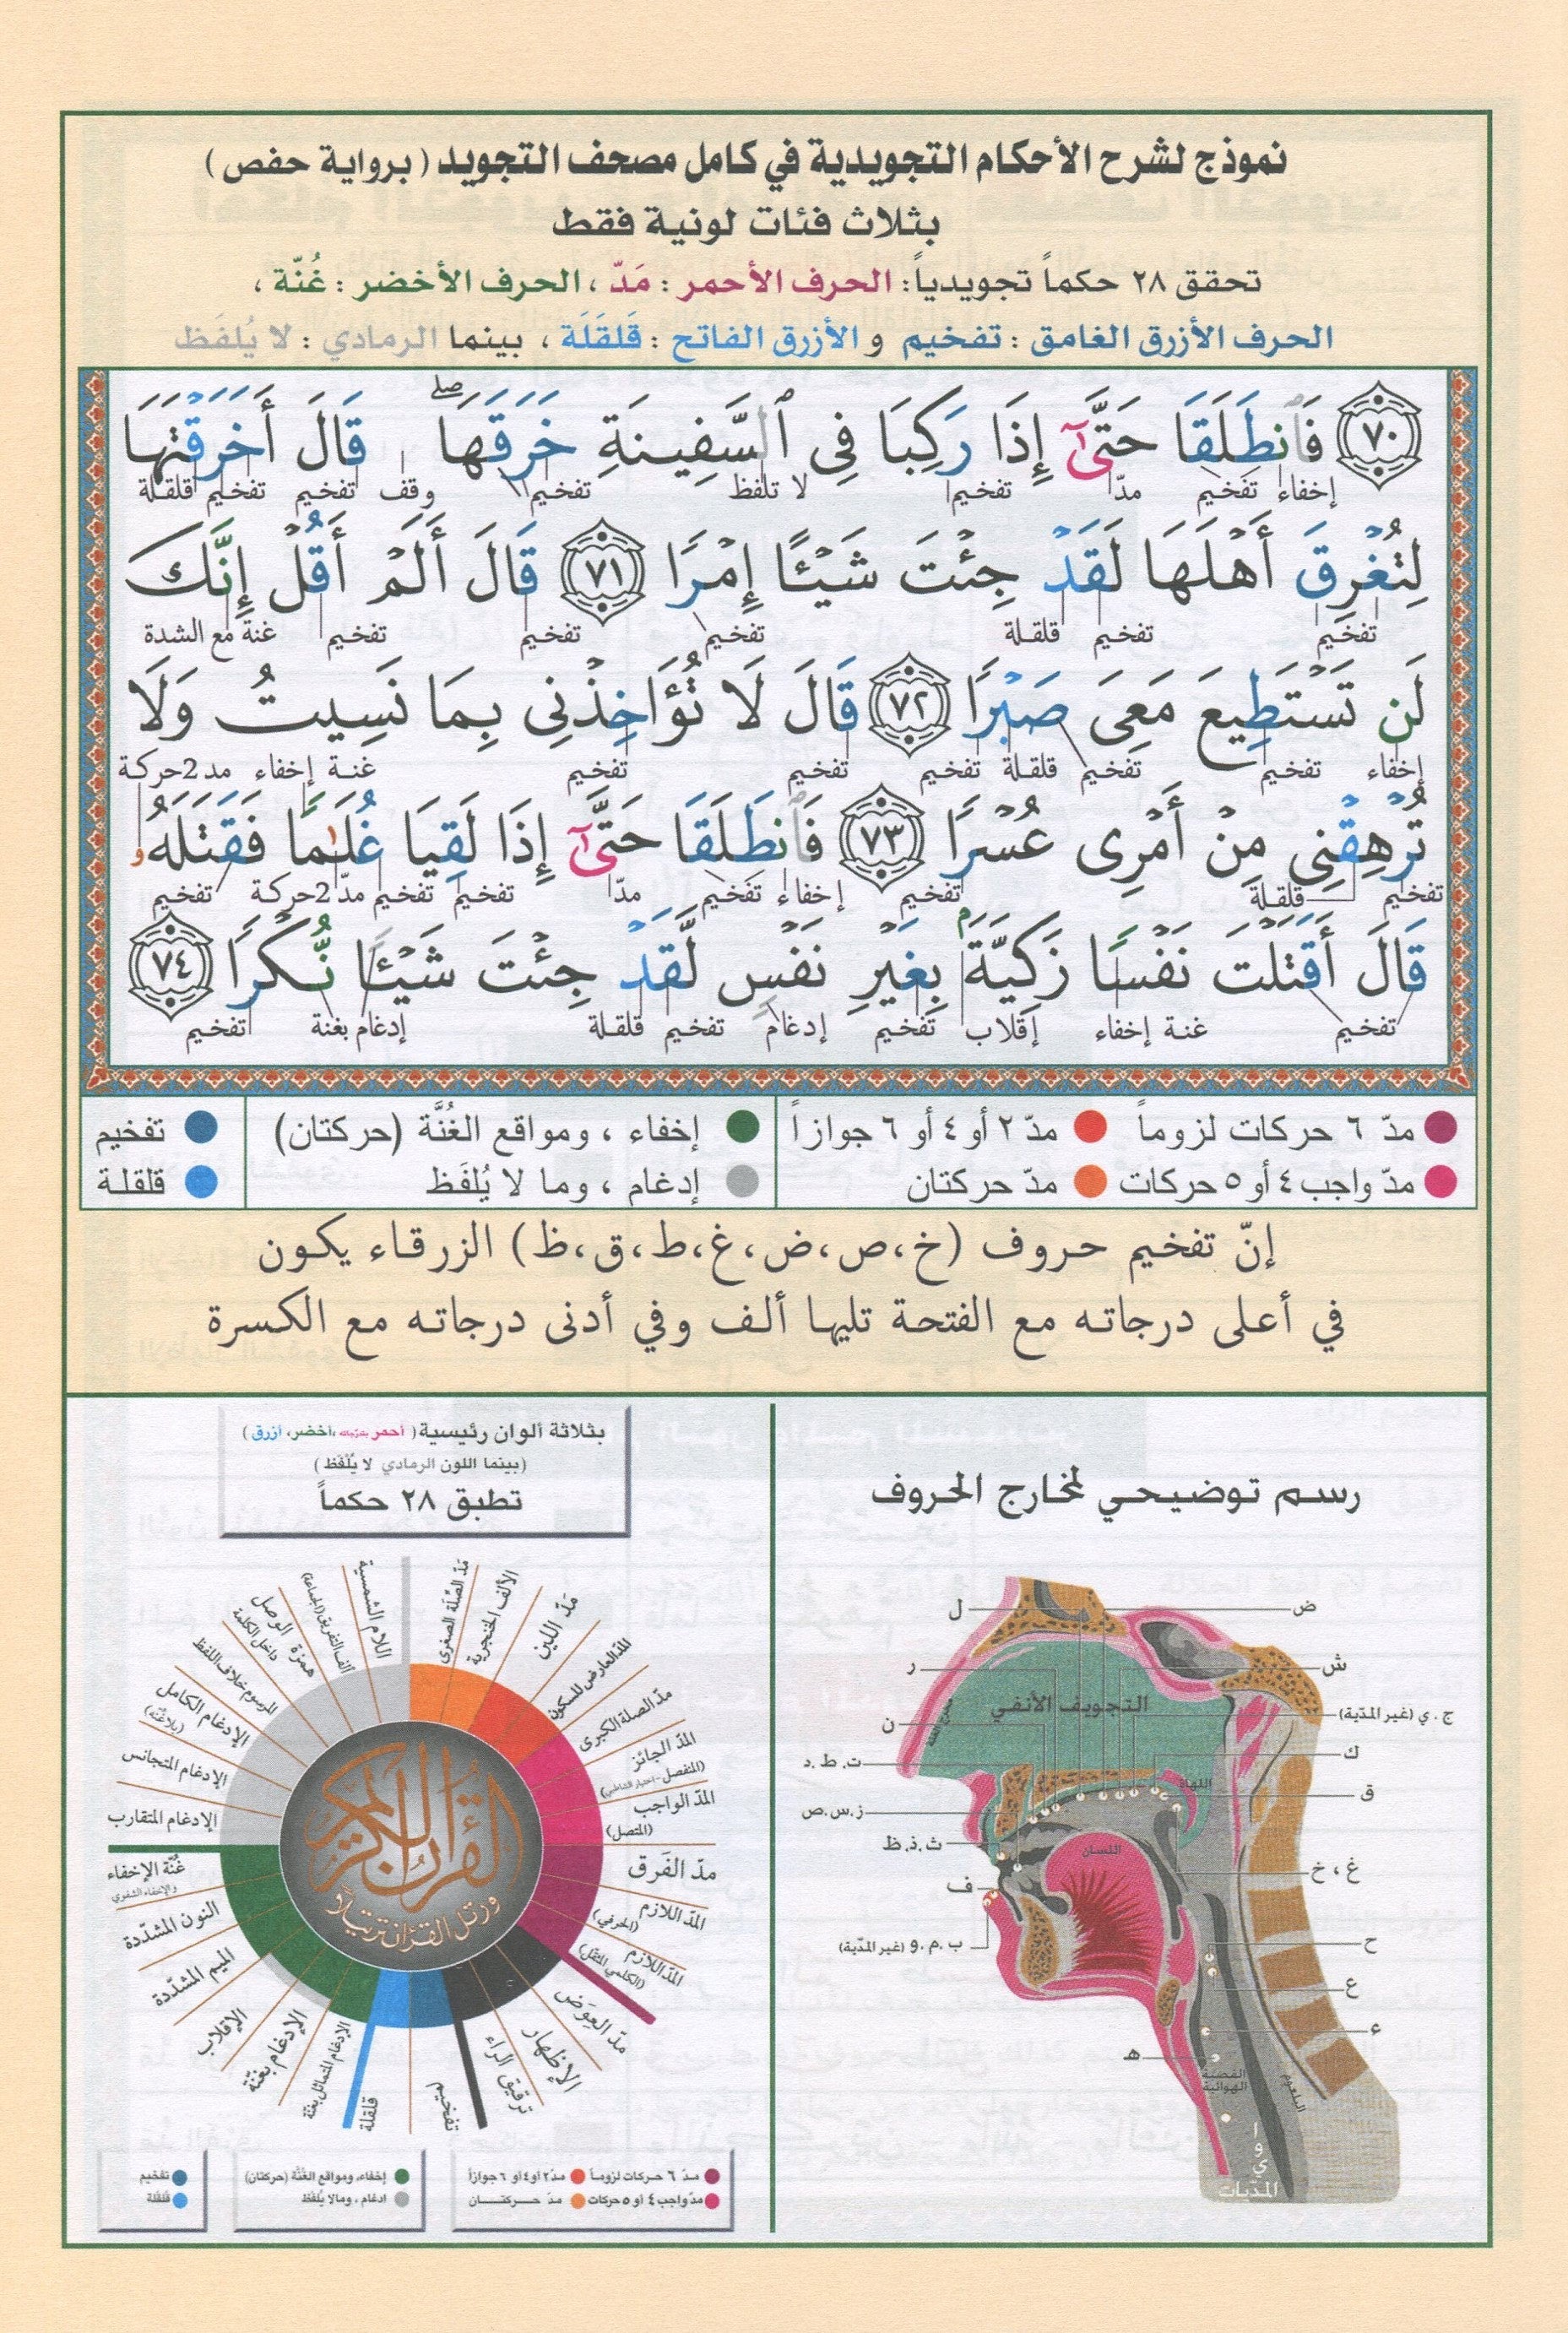 نموذج لشرح الأحكام التجويدية في كامل مصحف التجويد ( برواية حفص )
بثلاث فئات لونية فقط
تحقق ٢٨ حكماً تجويدياً: الحرف الأحمر : مَدّ ، الحرف الأخضر : غُنّة ،
الحرف الأزرق الغامق : تفخيم و الأزرق الفاتح : قَلقَلَة ، بينما الرمادي : لا يُلفَظ
٧٠ فَٱنطَلَقَا حَتَّىٰٓ إِذَا رَكِبَا فِى ٱلسَّفِينَةِ خَرَقَهَا ۖ قَالَ أَخَرَقْتَهَا
إخفاء تفخيم مدّ تفخيم لا تلفظ تفخيم وقف تفخيم تفخيم قلقلة
لِتُغْرِقَ أَهْلَهَا لَقَدْ جِئْتَ شَيْـًٔا إِمْرًا ٧١ قَالَ أَلَمْ أَقُلْ إِنَّكَ
تفخيم تفخيم قلقلة تفخيم تفخيم تفخيم غنة مع الشدة
لَن تَسْتَطِيعَ مَعِىَ صَبْرًا ٧٢ قَالَ لَا تُؤَاخِذْنِى بِمَا نَسِيتُ وَلَا
إخفاء تفخيم تفخيم قلقلة تفخيم تفخيم تفخيم غنة إخفاء مد 2حركة
تُرْهِقْنِى مِنْ أَمْرِى عُسْرًا ٧٣ فَٱنطَلَقَا حَتَّىٰٓ إِذَا لَقِيَا غُلَـٰمًا فَقَتَلَهُۥ
تفخيم قلقلة تفخيم إخفاء تفخيم مدّ تفخيم تفخيم مدّ 2حركة تفخيم
قَالَ أَقَتَلْتَ نَفْسًا زَكِيَّةًۢ بِغَيْرِ نَفْسٍ لَّقَدْ جِئْتَ شَيْـًٔا نُّكْرًا ٧٤
تفخيم غنة إخفاء إقلاب تفخيم إدغام تفخيم قلقلة إدغام بغنة تفخيم
مدّ ٦ حركات لزوماً مدّ ٢ أو ٤ أو ٦ جوازاً إخفاء ، ومواقع الغُنَّة (حركتان) تفخيم
مدّ واجب ٤ أو ٥ حركات مدّ حركتان إدغام ، وما لا يُلفَظ قلقلة
إنّ تفخيم حروف (خ،ص،ض،غ،ط،ق،ظ) الزرقاء يكون
في أعلى درجاته مع الفتحة تليها ألف وفي أدنى درجاته مع الكسرة
رسم توضيحي لمخارج الحروف
ض
ل
ش
ر
التجويف الأنفي
ج . ي (غير المديّة)
ن
ك
ت . ط . د
اللهاة
ق
ز . س . ص
ث . ذ . ظ
اللسان
غ ، خ
ف
ح
ب . م . و (غير المديّة)
ع
ء
هـ
القصبة الهوائية
البلعوم
ا
و
ي
المدّيات
بثلاثة ألوان رئيسية ( أحمر بتدرجاته ،أخضر، أزرق )
(بينما اللون الرمادي لا يُلْفَظ )
تطبق ٢٨ حكماً
مَدّ الصِّلة الصغرى
الألف الخنجرية
مَدّ اللين
المدّ العارض للسكون
مدّ الصلة الكبرى
المدّ الجائز
(المنفصل - اختيار الشاطبي)
المدّ الواجب
(المتصل)
مدّ الفَرق
المدّ اللازم
(الحرفي)
المدّ اللازم
(الكلمي المثقل)
مدّ العِوَض
الإظهار
ترقيق الراء
تفخيم
قلقلة
الإدغام المتماثل بغنّة
الإدغام بغنّة
الإقلاب
الميم المشدّدة
النون المشدّدة
غُنّة الإخفاء
والإخفاء الشفوي
الإدغام المتقارب
الإدغام المتجانس
الإدغام الكامل
(بلا غُنّة)
المرسوم خلاف اللفظ
همزة الوصل
داخل الكلمة
ألف التفريق (الجماعة)
اللام الشمسية
القرآن الكريم
ورتل القرآن ترتيلا
مدّ ٦ حركات لزوماً مدّ ٢ أو ٤ أو ٦ جوازاً إخفاء، ومواقع الغُنَّة (حركتان) تفخيم
مدّ واجب ٤ أو ٥ حركات مدّ حركتان ادغام ، ومالا يُلفَظ قلقلة